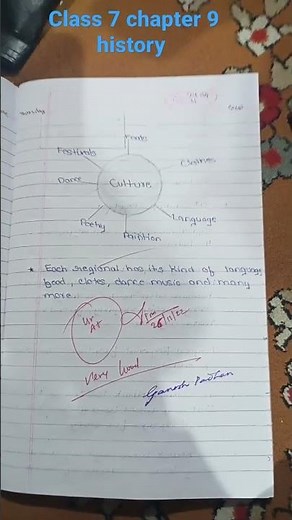 Class 7 chapter 9
history
Sunday
Foods
Festivals
Clothes
Dance
Culture
Language
Poetry
Paintion
* Each regional has its kind of language
food, clotes, dance music and many
more.
A+
26/11/22
Very Good
Ganesh Pradhan